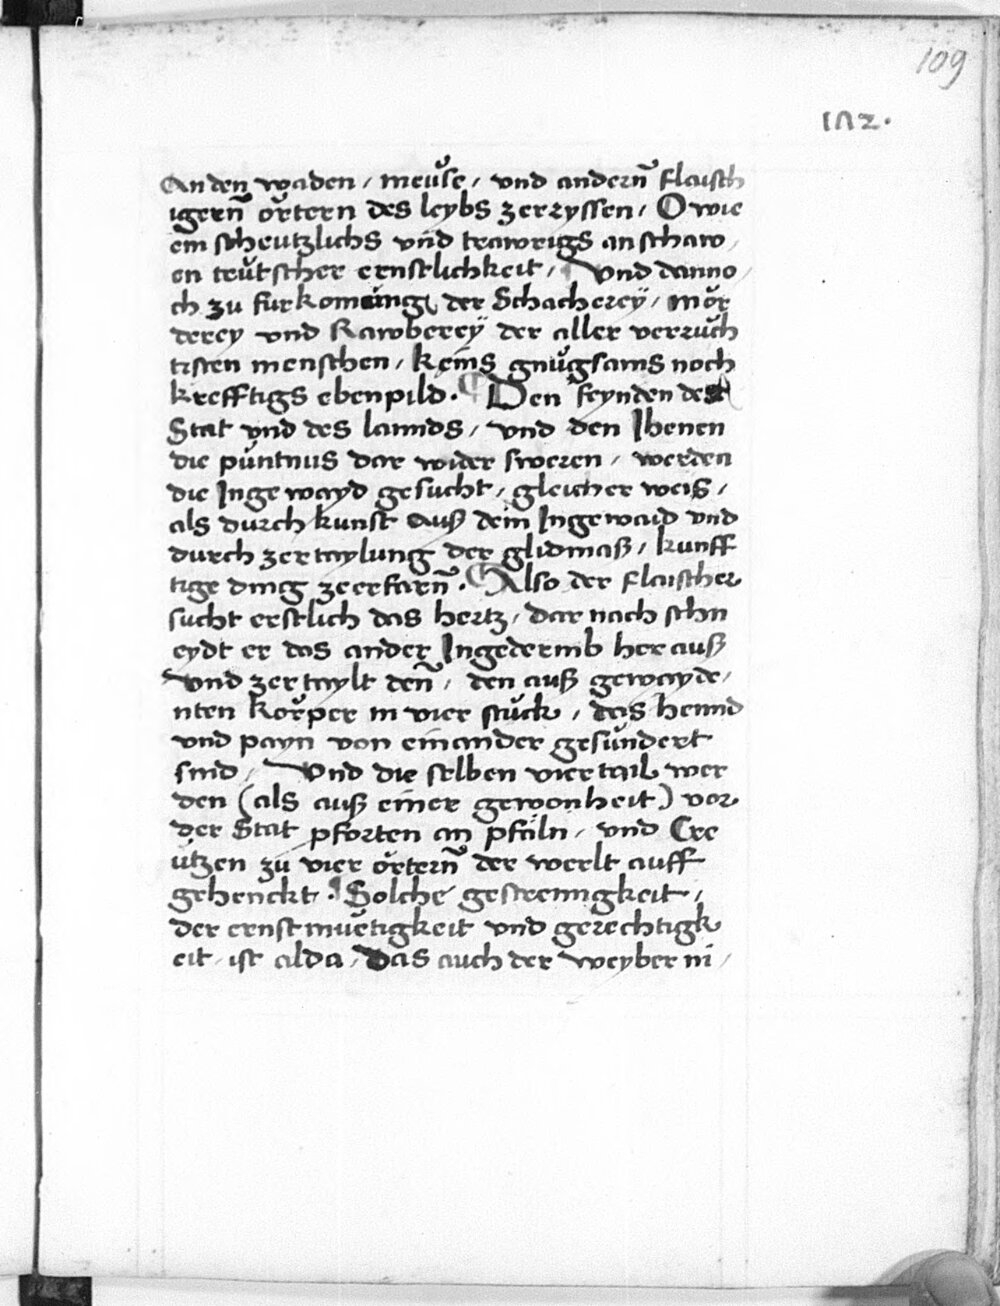 109
1Λ2.
An den waden / meůse / vnd andern̄ flaisch
igern̄ o̊rtern des leybs zerzyssen / O wie
ein scheutzlichs vnd trawrigs anschaw /
en teůtscher ernstlichkeit / Vnd danno /
ch zu furkoming der Schacherey / mo̊r
derey vnd Rawberey der aller verrůch
tisten menschen / keins gnůgsams noch
krefftigs ebenpild . ¶ Den feynden des
Stat vnd des lannds / vnd den Ihenen
die půntnus dar wider sweren / werden
die Ingewayd gesucht / gleicher weis /
als durch kunst auß dem Ingewaid vnd
durch zertaylung der glidmaß / kunff
tige ding ze erfarn̄ . ¶ Also der flaischer
sucht erstlich das hertz / dar nach schn
eydt er das ander Ingedermb her auß
vnd zertaylt den̄ / den auß gewayde /
nten ko̊rper in vier stůck / das hennd
vnd payn von einander gesůndert
sind / Vnd die selben viertail wer
den (als auß einer gewonheit) vor
der Stat pforten an pfäln / vnd Cre
ůtzen zu vier o̊rtern̄ der werlt auff
gehenckt . ¶ Solche gestrenngkeit /
der ernstmůetigkeit vnd gerechtigk
eit / ist alda / Das auch der weyber ni /